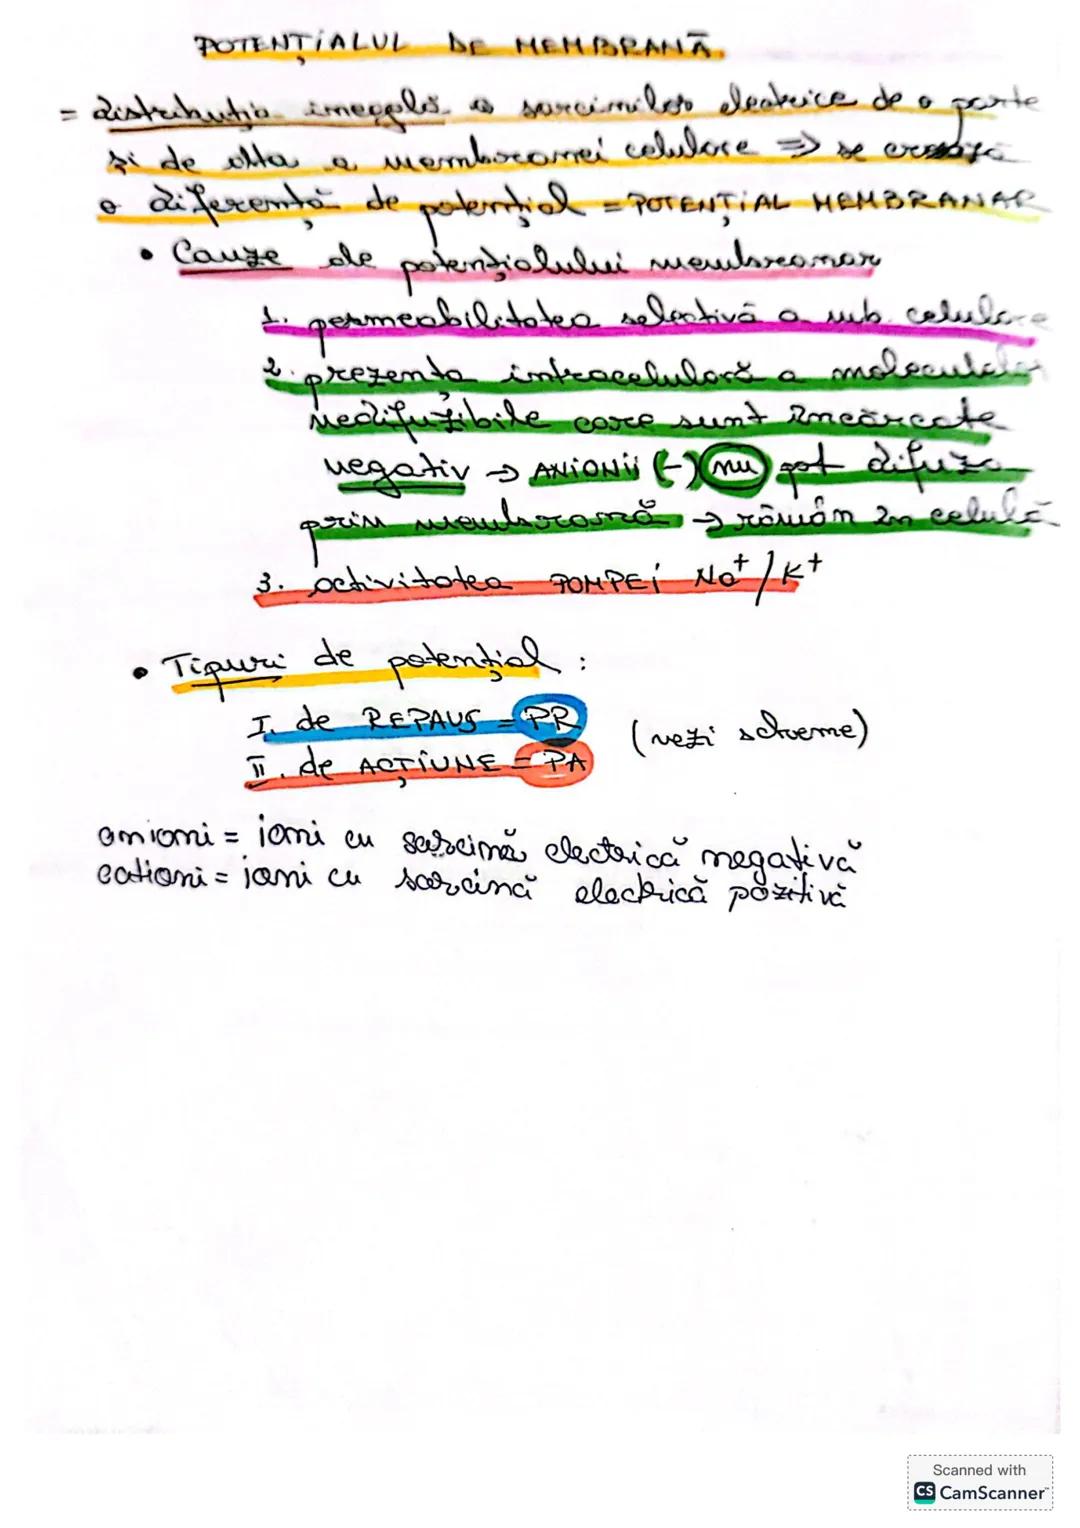 POTENȚIALUL DE MEMBRANĂ
= distribuția inegală a sarcinilor electrice de o parte
și de alta a membranei celulare => se crează
o diferență de potențial = POTENȚIAL MEMBRANAR
• Cauze ale potențialului membranar
1. permeabilitatea selectivă a mb. celulare
2. prezența intracelulară a moleculelor
nedifuzibile care sunt încărcate
negativ → ANIONII (-) nu pot difuza
prin membrană → rămân în celulă
3. activitatea POMPEI Na+/K+
• Tipuri de potențial :
I. de REPAUS = PR
(vezi scheme)
II. de ACȚIUNE = PA
anioni = ioni cu sarcină electrică negativă
cationi = ioni cu sarcină electrică pozitivă
Scanned with
CS CamScanner